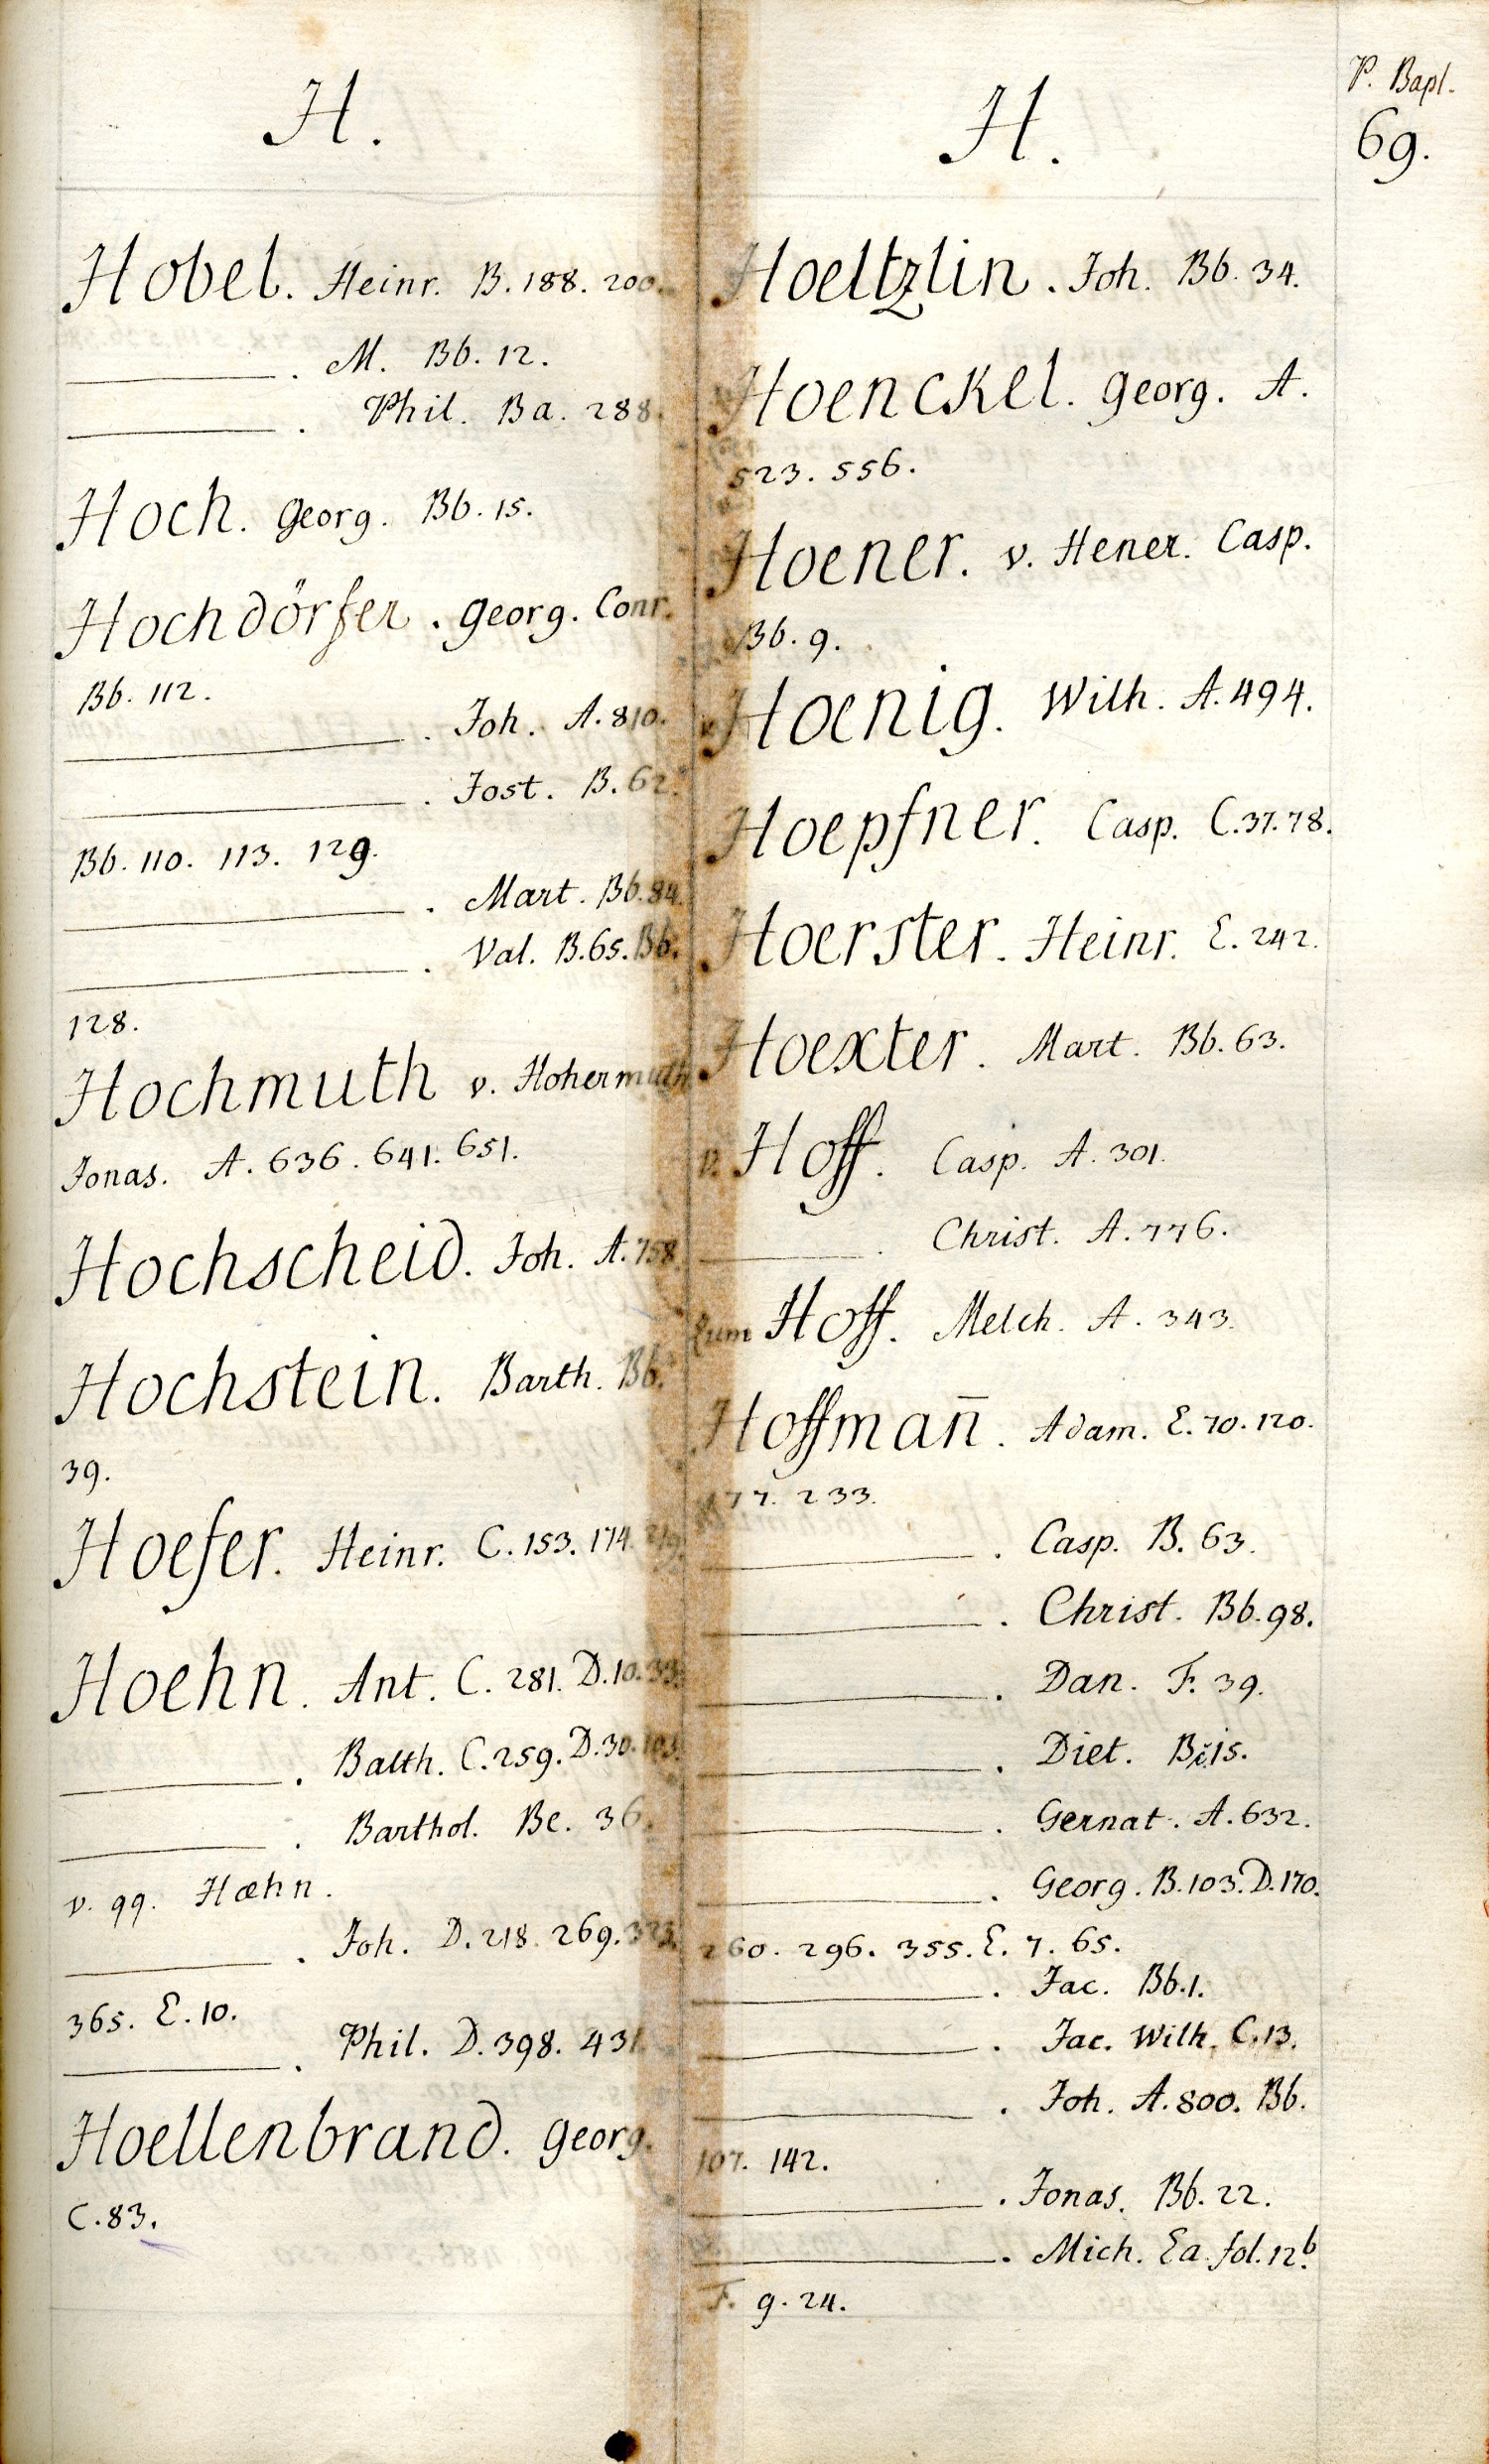 H.
Hobel. Heinr. B. 188. 200.
———. M. Bb. 12.
———. Phil. Ba. 288.
Hoch. Georg. Bb. 15.
Hochdörfer. Georg. Conr.
Bb. 112.
———. Joh. A. 810.
———. Jost. B. 62.
Bb. 110. 113. 129.
———. Mart. Bb. 84.
———. Val. B. 65. Bb.
128.
Hochmuth v. Hohermuth
Jonas. A. 636. 641. 651.
Hochscheid. Joh. A. 758.
Hochstein. Barth. Bb.
39.
Hoefer. Heinr. C. 153. 174.
Hoehn. Ant. C. 281. D. 10. 33.
———. Balth. C. 259. D. 30. 103.
———. Barthol. Bc. 36.
v. 99. Hæhn.
———. Joh. D. 218. 269. 323.
365. E. 10.
———. Phil. D. 398. 431.
Hoellenbrand. Georg.
C. 83.
H.
P. Bapt.
69.
Hoeltzlin. Joh. Bb. 34.
Hoenckel. Georg. A.
523. 556.
Hoener. v. Hener. Casp.
Bb. 9.
Hoenig. Wilh. A. 494.
Hoepfner. Casp. C. 37. 78.
Hoerster. Heinr. E. 242.
Hoexter. Mart. Bb. 63.
v. Hoff. Casp. A. 301.
———. Christ. A. 776.
zum Hoff. Melch. A. 343.
Hoffman̄. Adam. E. 70. 120.
177. 233.
———. Casp. B. 63.
———. Christ. Bb. 98.
———. Dan. F. 39.
———. Diet. Bc. 15.
———. Gernat. A. 632.
———. Georg. B. 103. D. 170.
260. 296. 355. E. 7. 65.
———. Jac. Bb. 1.
———. Jac. Wilh. C. 13.
———. Joh. A. 800. Bb.
107. 142.
———. Jonas. Bb. 22.
———. Mich. Ea. fol. 12b.
F. 9. 24.